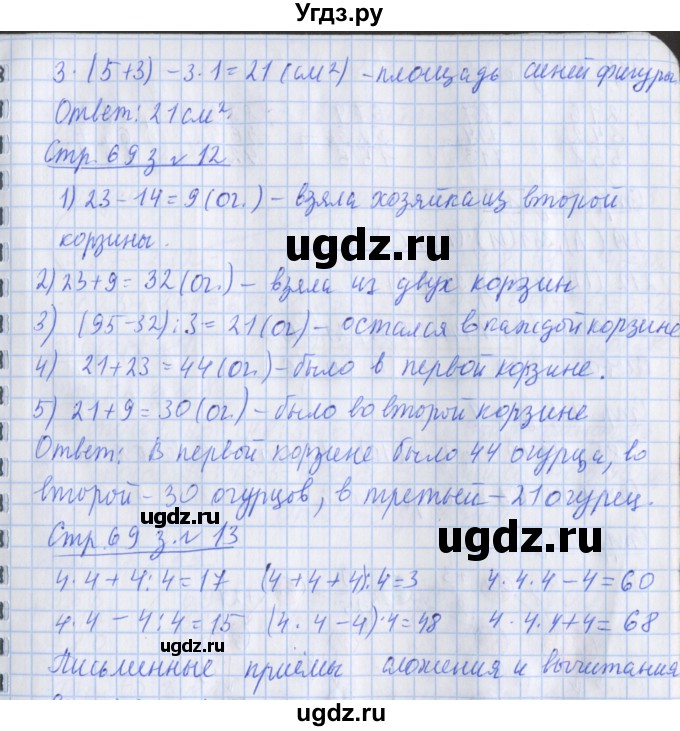 Угдз.ру
3·(5+3)-3·1=21(см²) - площадь синей фигуры
Ответ: 21 см².
Стр. 69 з. № 12
1) 23-14=9(ог.) - взяла хозяйка из второй
корзины.
ugdz.ru
2) 23+9=32(ог.) - взяла из двух корзин
3) (95-32):3=21(ог) - остался в каждой корзине
4) 21+23=44(ог.) - было в первой корзине.
5) 21+9=30(ог.) - было во второй корзине
Ответ: В первой корзине было 44 огурца, во
второй - 30 огурцов, в третьей - 21 огурец.
ugdz.ru
Стр. 69 з. № 13
4·4+4:4=17 (4+4+4):4=3 4·4·4-4=60
4·4-4:4=15 (4·4-4)·4=48 4·4·4+4=68
ugdz.ru
Письменные приёмы сложения и вычитания
ugdz.ru
ugdz.ru